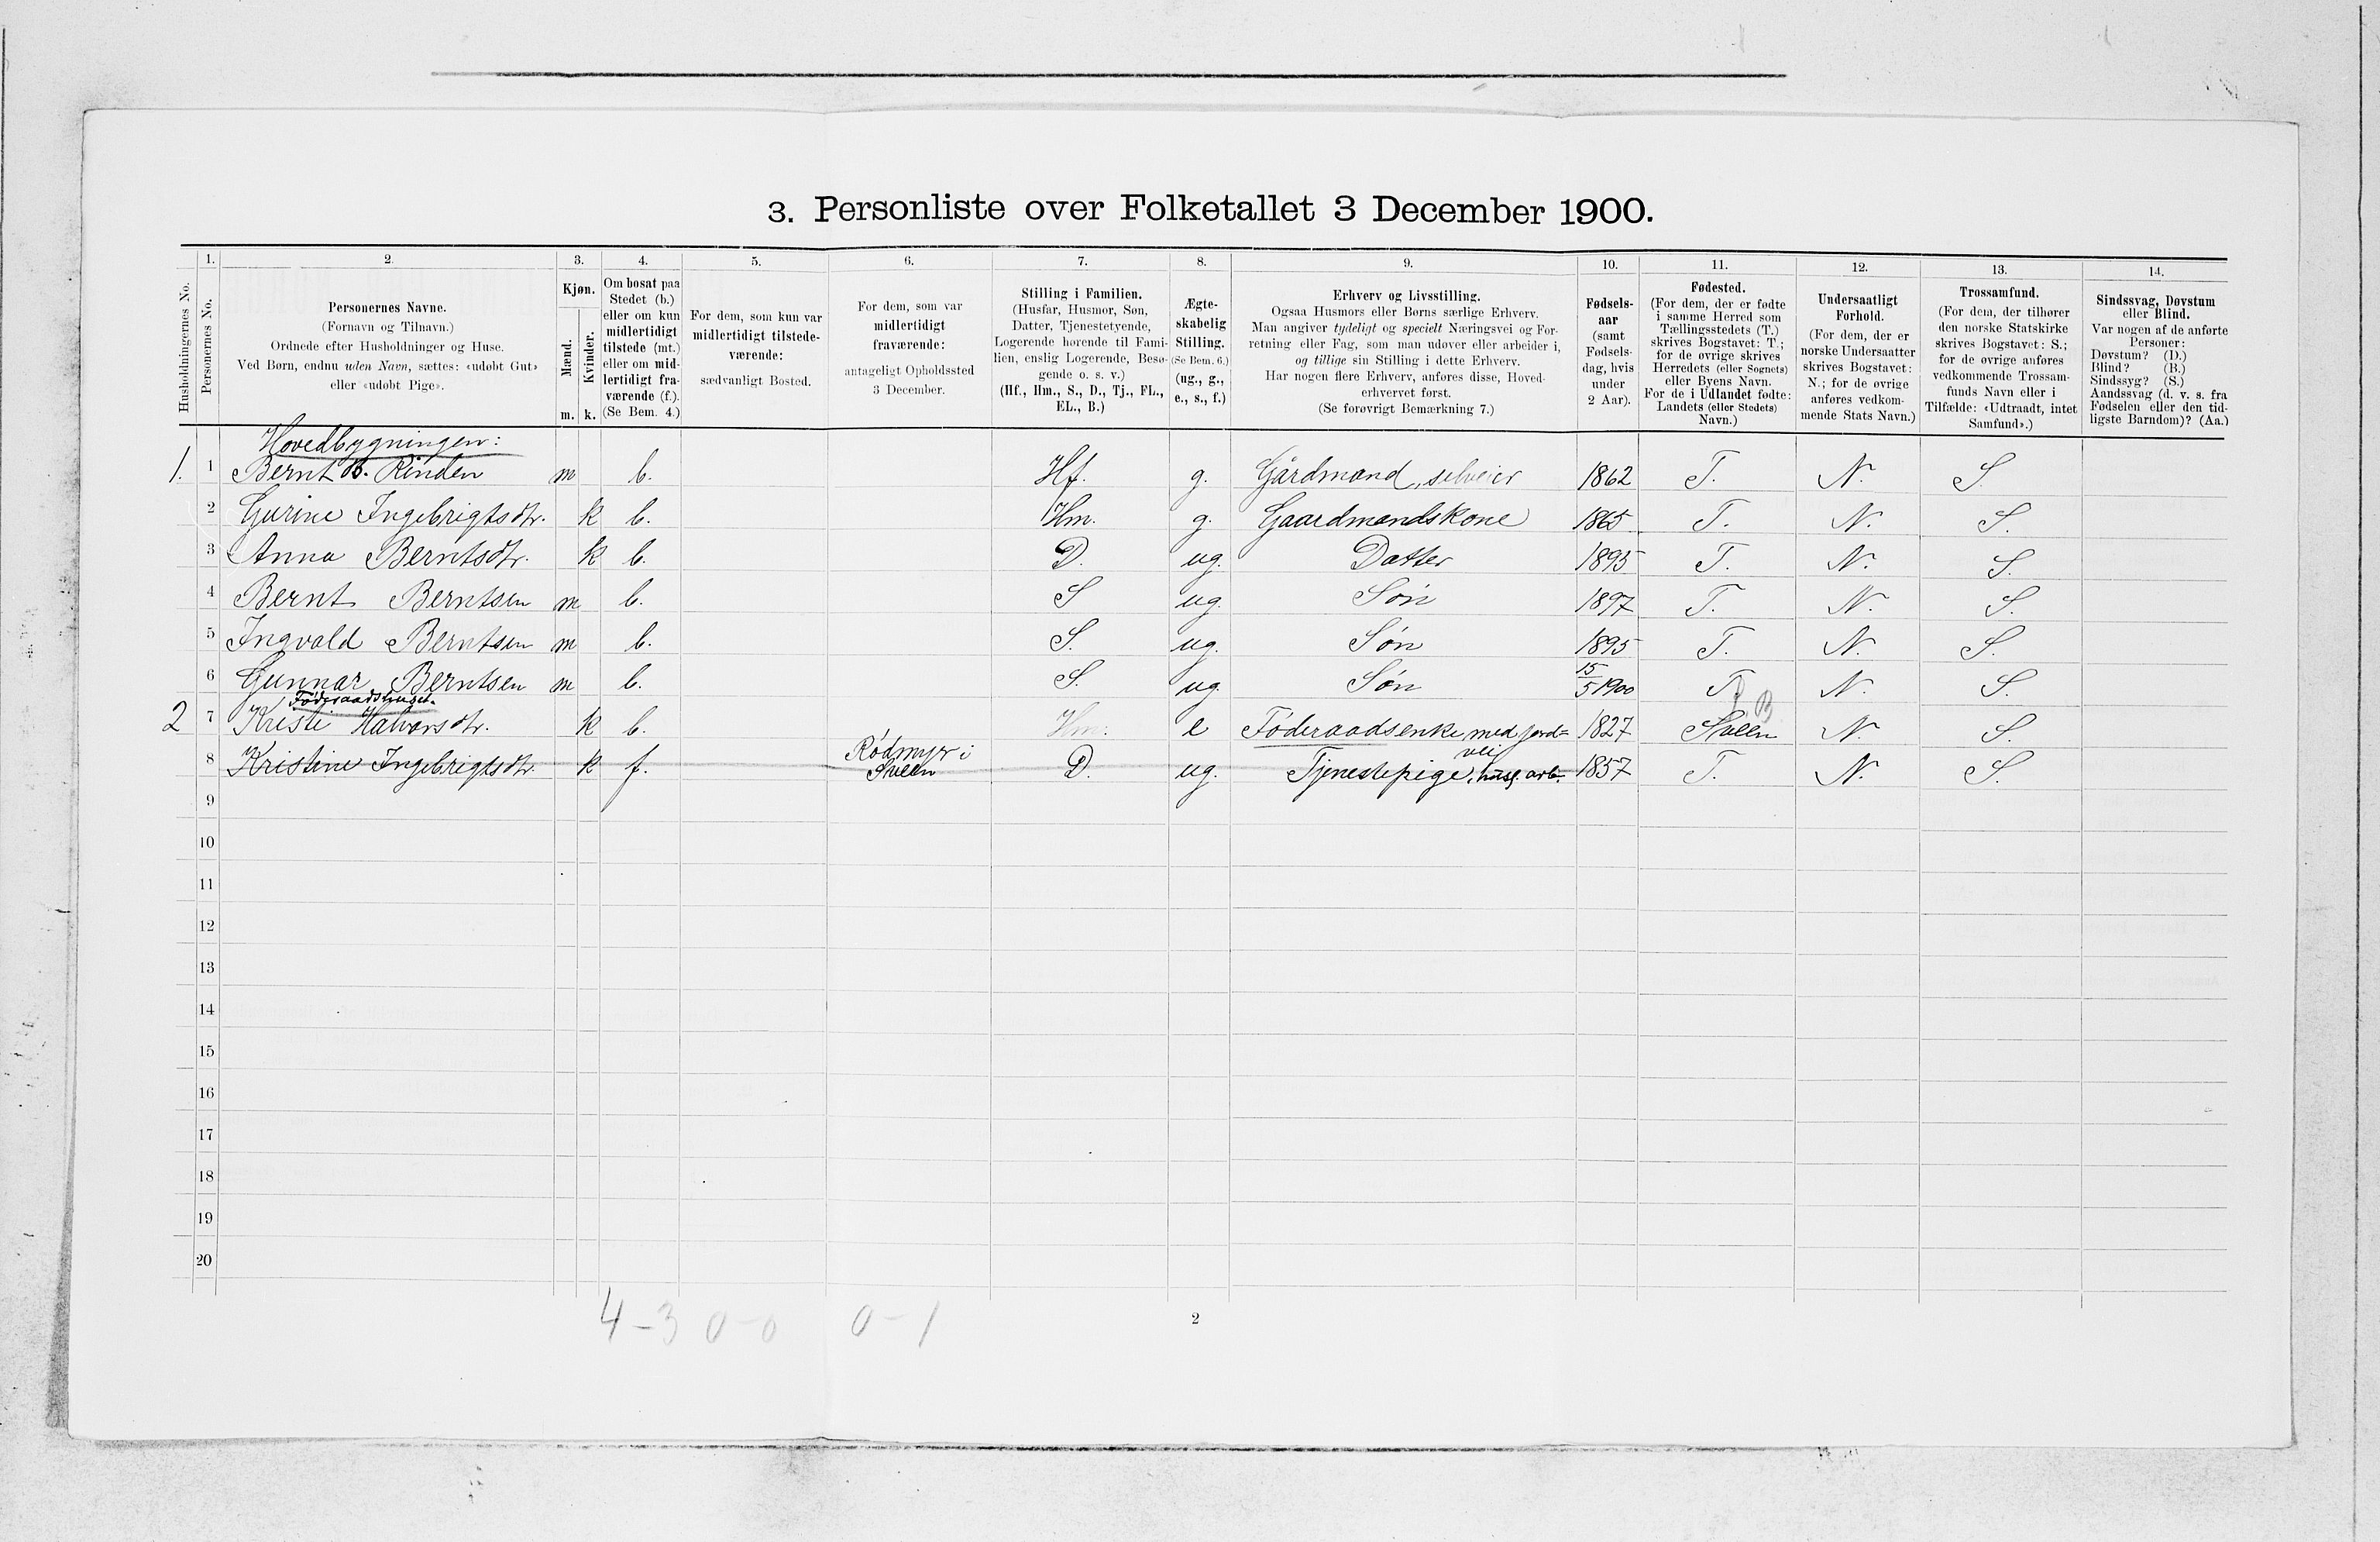 3. Personliste over Folketallet 3 December 1900.
1. 2. 3. 4. 5. 6. 7. 8. 9. 10. 11. 12. 13. 14.
Husholdningernes No.
Personernes No.
Personernes Navne.
(Fornavn og Tilnavn.)
Ordnede efter Husholdninger og Huse.
Ved Børn, endnu uden Navn, sættes: «udøbt Gut»
eller «udøbt Pige».
Kjøn.
Mænd.
Kvinder.
m. k.
Om bosat paa
Stedet (b.)
eller om kun
midlertidigt
tilstede (mt.)
eller om mid-
lertidigt fra-
værende (f.).
(Se Bem. 4.)
For dem, som kun var
midlertidigt tilstede-
værende:
sædvanligt Bosted.
For dem, som var
midlertidigt
fraværende:
antageligt Opholdssted
3 December.
Stilling i Familien.
(Husfar, Husmor, Søn,
Datter, Tjenestetyende,
Logerende hørende til Fami-
lien, enslig Logerende, Besø-
gende o. s. v.)
(Hf., Hm., S., D., Tj., FL.,
EL., B.)
Ægte-
skabelig
Stilling.
(Se Bem. 6.)
(ug., g.,
e., s., f.)
Erhverv og Livsstilling.
Ogsaa Husmors eller Børns særlige Erhverv.
Man angiver tydeligt og specielt Næringsvei og For-
retning eller Fag, som man udøver eller arbeider i,
og tillige sin Stilling i dette Erhverv.
Har nogen flere Erhverv, anføres disse, Hoved-
erhvervet først.
(Se forøvrigt Bemærkning 7.)
Fødsels-
aar
(samt
Fødsels-
dag, hvis
under
2 Aar).
Fødested.
(For dem, der er fødte
i samme Herred som
Tællingsstedets (T.)
skrives Bogstavet: T.;
for de øvrige skrives
Herredets (eller Sognets)
eller Byens Navn.
For de i Udlandet fødte:
Landets (eller Stedets)
Navn.)
Undersaatligt
Forhold.
(For dem, der er
norske Undersaatter
skrives Bogstavet:
N.; for de øvrige
anføres vedkom-
mende Stats Navn.)
Trossamfund.
(For dem, der tilhører
den norske Statskirke
skrives Bogstavet: S.;
for de øvrige anføres
vedkommende Trossam-
funds Navn eller i
Tilfælde: «Udtraadt, intet
Samfund».)
Sindssvag, Døvstum
eller Blind.
Var nogen af de anførte
Personer:
Døvstum? (D.)
Blind? (B.)
Sindssyg? (S.)
Aandssvag (d. v. s. fra
Fødselen eller den tid-
ligste Barndom)? (Aa.)
Hovedbygningen:
1. 1 Bernt B. Rinden m b. Hf. g. Gårdmand, selveier 1862 T. N. S.
2 Gurine Ingebrigtsdtr. k b. Hm. g. Gaardmandskone 1865 T. N. S.
3 Anna Berntsdtr. k b. D. ug. Datter 1895 T. N. S.
4 Bernt Berntsen m b. S ug. Søn 1897 T. N. S.
5 Ingvald Berntsen m b. S. ug. Søn 1895 T. N. S.
6 Gunnar Berntsen m b. S. ug. Søn 15/5 1900 T N. S.
Føderaadshuset. B
2 7 Kristi Halvorsdtr. k b. Hm. e Føderaadsenke med jord- 1827 N. S.
Rødmyr i vei
8 Kristine Ingebrigtsdtr. k f. D. ug. Tjenestepige, husl. arb. 1857 T. N. S.
9
10
11
12
13
14
15
16
17
18
19
20
4-3 0-0 0-1
2